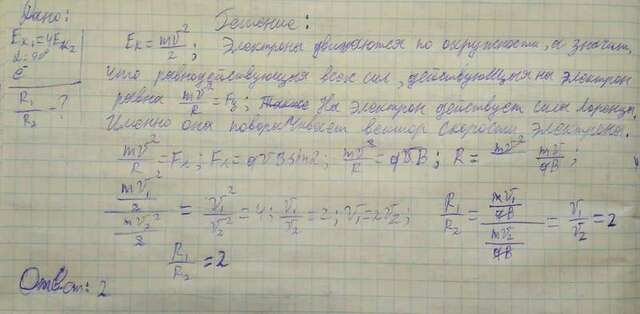 Дано:
Решение:
Eк₁=4Eк₂
α=90°
e⁻
R₁/R₂ - ?
Eк = mv²/2; Электроны двигаются по окружности, а значит,
что равнодействующая всех сил, действующих на электрон
равна mv²/R = Fл, На электрон действует сила Лоренца.
Именно она поворачивает вектор скорости электрона.
mv²/R = Fл; Fл = qvBsinα; mv²/R = qvB; R = mv/qB;
(mv₁²/2)/(mv₂²/2) = v₁²/v₂² = 4; v₁/v₂ = 2; v₁=2v₂; R₁/R₂ = (mv₁/qB)/(mv₂/qB) = v₁/v₂ = 2
R₁/R₂ = 2
Ответ: 2